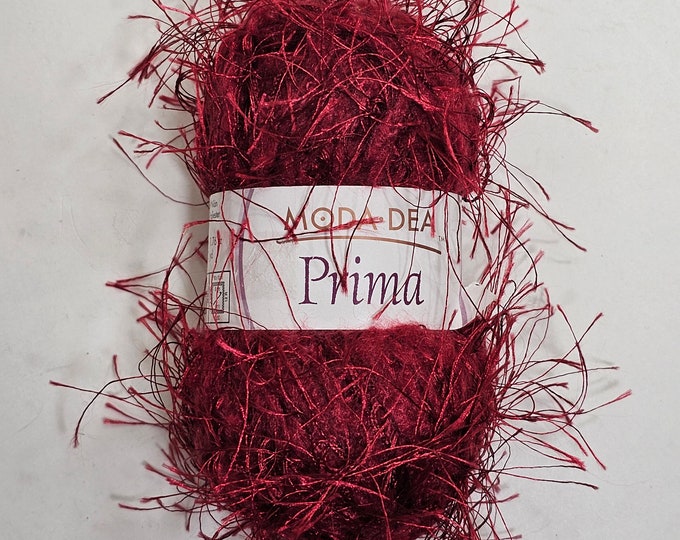 MODA DEA
™
Prima